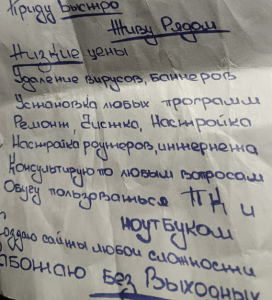 Приду Быстро
Живу Рядом
Низкие цены
Удаление вирусов, баннеров
Установка любых программ
Ремонт, Чистка, Настройка
Настройка роутеров, интернета
Консультирую по любым вопросам
Обучу пользоваться ПК и
ноутбуком
Создаю сайты любой сложности
Работаю Без Выходных